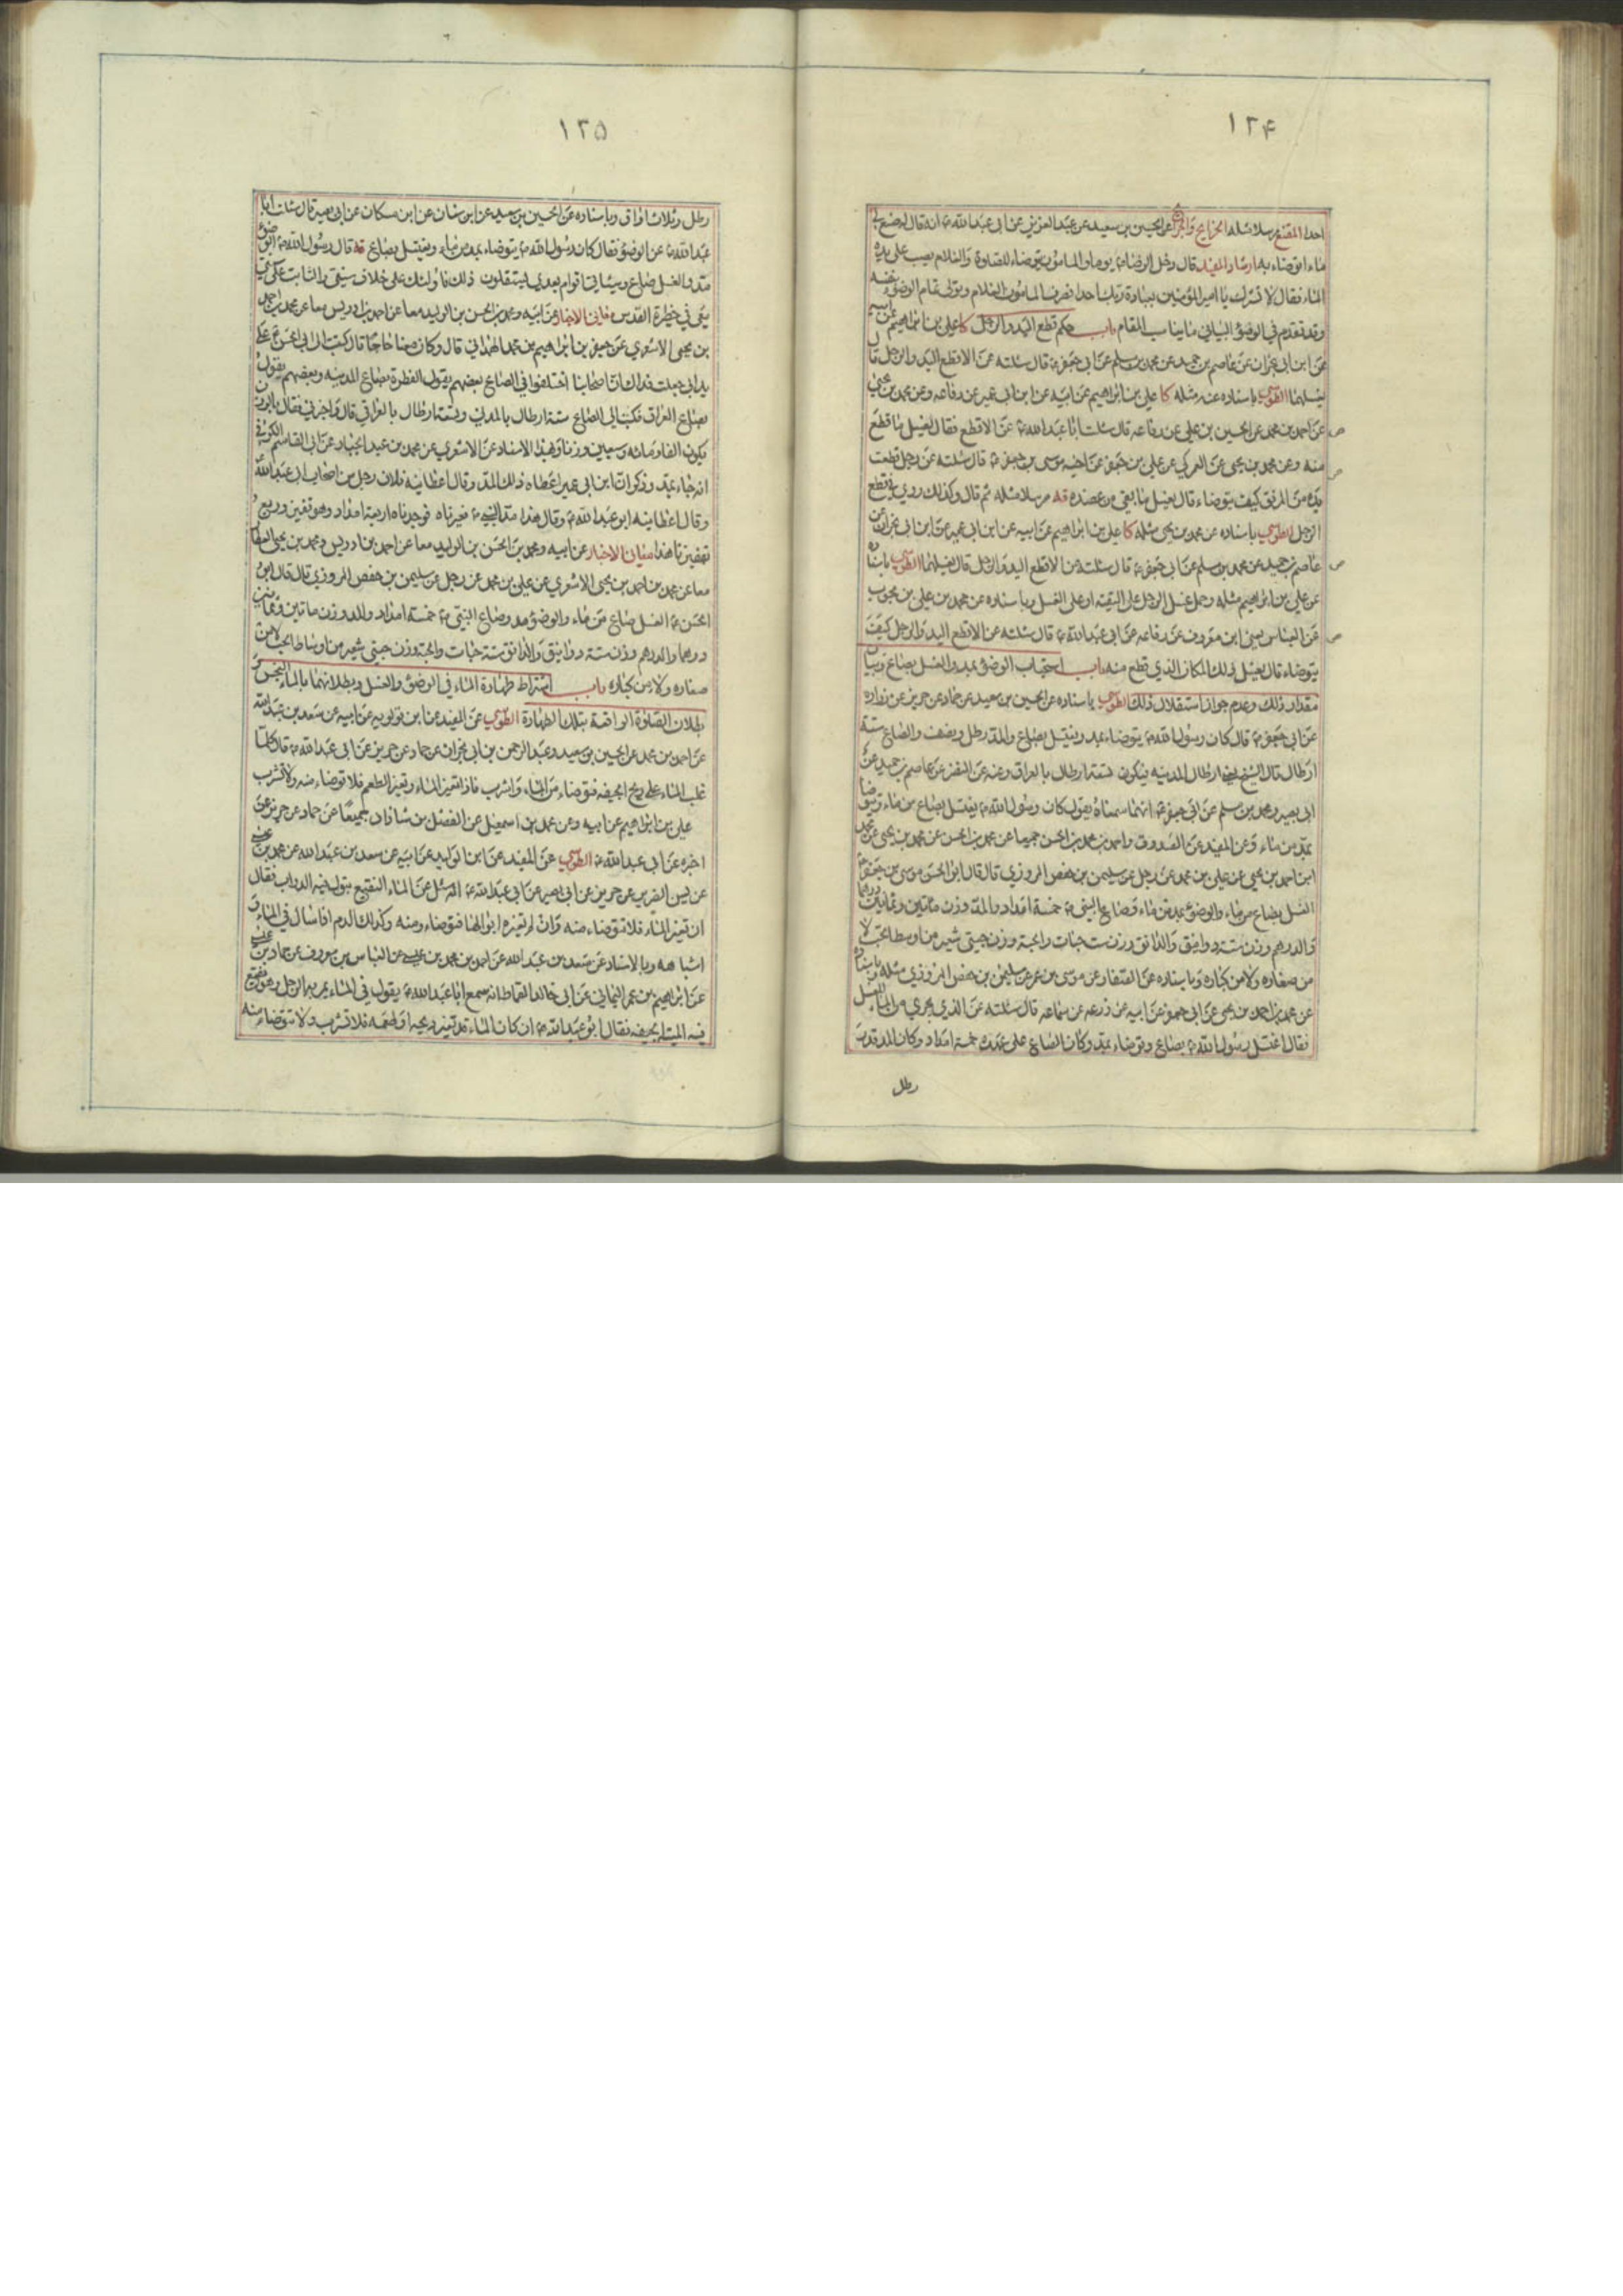 ١٢۴
احدا المقنع مرسلا مثله الخرايج والجرايح عن الحسين بن سعيد عن عبد العزيز عن ابى عبد الله ع انه قال لوضع لى
ماء اتوضاء به ارشاد المفيد قال دخل الرضا ع يوما والمامون يتوضاء للصلوة والغلام يصب على يده
الماء فقال لا تشرك يا امير المؤمنين بعبادة ربك احدا فصرف المامون الغلام وتولى تمام الوضوء بنفسه
وقد تقدم في الوضوء البياني ما يناسب المقام باب حكم قطع اليد والرجل كا على بن ابراهيم عن ابيه
عن ابن ابى نجران عن عاصم بن حميد عن محمد بن مسلم عن ابى جعفر ع قال سئلته عن الاقطع اليد والرجل قال
يغسلهما الطوسي باسناده عنه مثله كا على بن ابراهيم عن ابيه عن ابن ابى عمير عن رفاعه وعن محمد بن يحيى
عن احمد بن محمد عن الحسين بن على عن رفاعه قال سئلت ابا عبد الله ع عن الاقطع فقال يغسل ما قطع
منه وعن محمد بن يحيى عن العمركي عن على بن جعفر عن اخيه موسى بن جعفر ع قال سئلته عن رجل قطعت
يده من المرفق كيف يتوضاء قال يغسل ما بقى من عضده قه مرسلا مثله ثم قال وكذلك روي في قطع
الرجل الطوسي باسناده عن محمد بن يحيى مثله كا على بن ابراهيم عن ابيه عن ابن ابى عمير عن ابن ابى نجران عن
عاصم بن حميد عن محمد بن مسلم عن ابى جعفر ع قال سئلته عن الاقطع اليد والرجل قال يغسلهما الطوسي باسناده
عن على بن ابراهيم مثله وحمل غسل الرجل على التقيه او على الغسل وباسناده عن محمد بن على بن محبوب
عن العباس يعنى ابن معروف عن رفاعه عن ابى عبد الله ع قال سئلته عن الاقطع اليد والرجل كيف
يتوضاء قال يغسل ذلك المكان الذي قطع منه باب استحباب الوضوء بمد والغسل بصاع وبيان
مقدار ذلك وعدم جواز استقلال ذلك الطوسي باسناده عن الحسين بن سعيد عن حماد عن حريز عن زراره
عن ابى جعفر ع قال كان رسول الله ص يتوضاء بمد ويغتسل بصاع والمد رطل ونصف والصاع ستة
ارطال قال الشيخ يعنى ارطال المدينه فيكون تسعة ارطال بالعراق وعنه عن النضر عن عاصم بن حميد عن
ابى بصير ومحمد بن مسلم عن ابى جعفر ع انهما سمعناه يقول كان رسول الله ص يغتسل بصاع من ماء ويتوضا
بمد من ماء وعن المفيد عن الصدوق واحمد بن محمد بن الحسن جميعا عن محمد بن الحسن عن محمد بن يحيى عن محمد
ابن احمد بن يحيى عن على بن محمد عن رجل عن سليمن بن حفص المروزي قال قال ابو الحسن موسى بن جعفر ع
الغسل بصاع من ماء والوضوء بمد من ماء وصاع النبي ص خمسة امداد والمد وزن مائتين وثمانين درهما
والدرهم وزن ستة دوانيق والدانق وزن ست حبات والحبة وزن حبتى شعير من اوسط الحب لا
من صغاره ولا من كباره وباسناده عن الصفار عن موسى بن عمر عن سليمن بن حفص المروزي مثله وباسناده
عن محمد بن احمد بن يحيى عن ابى جعفر عن ابيه عن زرعه عن سماعه قال سئلته عن الذي يجزي من الماء للغسل
فقال اغتسل رسول الله ص بصاع وتوضاء بمد وكان الصاع على عهده خمسة امداد وكان المد قدر
رطل
١٢۵
رطل وثلاث اواق وباسناده عن الحسين بن سعيد عن ابن سنان عن ابن مسكان عن ابى بصير قال سئلت ابا
عبد الله ع عن الوضوء فقال كان رسول الله ص يتوضاء بمد من ماء ويغتسل بصاع قه قال رسول الله ص الوضوء
مد والغسل صاع وسياتى اقوام بعدي يستقلون ذلك فاولئك على خلاف سنتى والثابت على سنتى
معى في حظيرة القدس معانى الاخبار عن ابيه ومحمد بن الحسن بن الوليد معا عن احمد بن ادريس معا عن محمد بن احمد
بن يحيى الاشعري عن جعفر بن ابراهيم بن محمد الهمداني قال وكان معنا حاجا قال كتبت الى ابى الحسن ع على
يد ابى جعلت فداك ان اصحابنا اختلفوا في الصاع بعضهم يقول الفطرة بصاع المدينه وبعضهم يقول
بصاع العراق فكتب الى الصاع ستة ارطال بالمدنى وتسعة ارطال بالعراقي قال واخبرني فقال بالوزن
يكون الفا ومائه وسبعين وزنا وبهذا الاسناد عن الاشعري عن محمد بن عبد الجبار عن ابى القاسم الكوفي
انه جاء بمد وذكر ان ابن ابى عمير اعطاه ذلك المد وقال اعطانيه فلان رجل من اصحاب ابى عبد الله
وقال اعطانيه ابو عبد الله ع وقال هذا مد النبي ص فعيرناه فوجدناه اربعة امداد وهو قفيز وربع
بقفيزنا هذا معانى الاخبار عن ابيه ومحمد بن الحسن بن الوليد معا عن احمد بن ادريس ومحمد بن يحيى العطار
معا عن محمد بن احمد بن يحيى الاشعري عن على بن محمد عن رجل عن سليمن بن حفص المروزي قال قال ابو
الحسن ع الغسل صاع من ماء والوضوء مد وصاع النبي ص خمسة امداد والمد وزن مائتين وثمانين
درهما والدرهم وزن ستة دوانيق والدانق ستة حبات والحبة وزن حبتى شعير من اوساط الحب لا من
صغاره ولا من كباره باب اشتراط طهارة الماء في الوضوء والغسل وبطلانهما بالماء النجس و
بطلان الصلوة الواقعة بتلك الطهارة الطوسي عن المفيد عن ابن قولويه عن ابيه عن سعد بن عبد الله
عن احمد بن محمد عن الحسين بن سعيد وعبد الرحمن بن ابى نجران عن حماد عن حريز عن ابى عبد الله ع قال كلما
غلب الماء على ريح الجيفه فتوضاء من الماء واشرب فاذا تغير الماء وتغير الطعم فلا توضاء منه ولا تشرب
على بن ابراهيم عن ابيه وعن محمد بن اسمعيل عن الفضل بن شاذان جميعا عن حماد عن حريز عمن
اخبره عن ابى عبد الله ع الطوسي عن المفيد عن ابن الوليد عن ابيه عن سعد بن عبد الله عن محمد بن عيسى
عن يس الضرير عن حريز عن ابى بصير عن ابى عبد الله ع انه سئل عن الماء النقيع تبول فيه الدواب فقال
ان تغير الماء فلا تتوضاء منه وان لم تغيره ابوالها فتوضاء ومنه وكذلك الدم اذا سال في الماء و
اشباهه وبالاسناد عن سعد بن عبد الله عن احمد بن محمد بن عيسى عن العباس بن معروف عن حماد بن عيسى
عن ابراهيم بن عمر اليماني عن ابى خالد القماط انه سمع ابا عبد الله ع يقول في الماء يمر به الرجل وهو نقيع
فيه الميته الجيفه فقال ابو عبد الله ع ان كان الماء قد تغير ريحه او طعمه فلا تشرب ولا تتوضاء منه